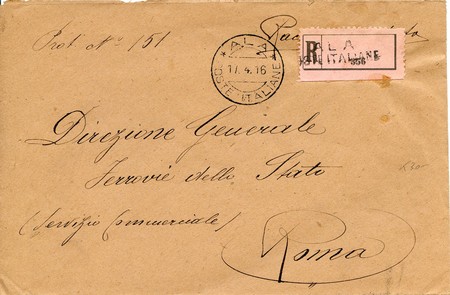 Prot N° 151
* ALA *
17.4.16
POSTE ITALIANE
R
ALA
POSTE ITALIANE
358
Direzione Generale
Ferrovie dello Stato
(Servizio Commerciale)
Roma